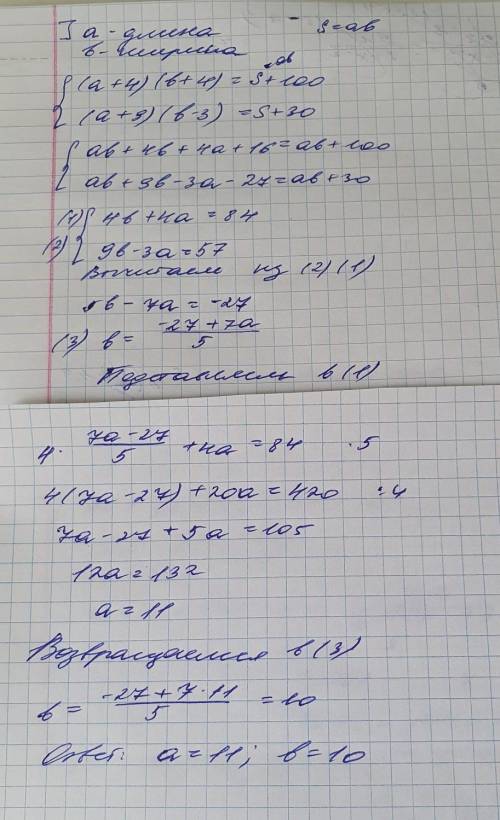 ] a - длина S = ab
b - ширина
ab
{ (a+4)(b+4) = S+100
(a+9)(b-3) = S+30
{ ab+4b+4a+16=ab+100
ab+9b-3a-27=ab+30
(1) { 4b+4a=84
(2) 9b-3a=57
Вычитаем из (2) (1)
5b-7a=-27
(3) b = (-27+7a)/5
Подставляем в (1)
4 · (7a-27)/5 + 4a = 84 ·5
4(7a-27)+20a=420 :4
7a-27+5a=105
12a=132
a=11
Возвращаемся в (3)
b = (-27+7·11)/5 = 10
Ответ: a=11; b=10